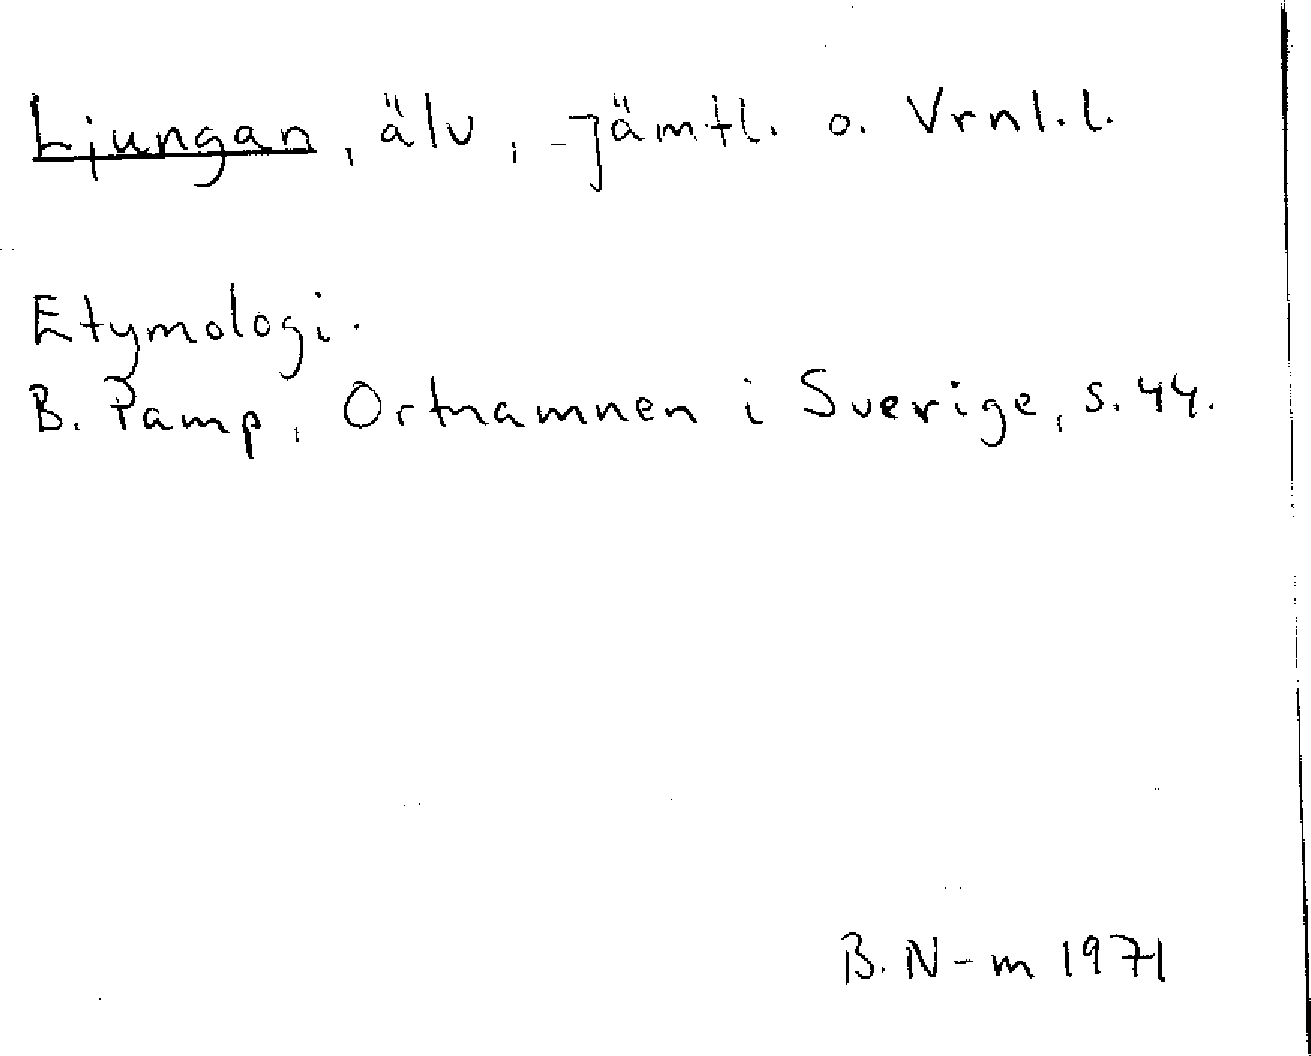 Ljungan, älv, Jämtl. o. Vrnl.l.
Etymologi.
B. Pamp, Ortnamnen i Sverige, s. 44.
B. N-m 1971